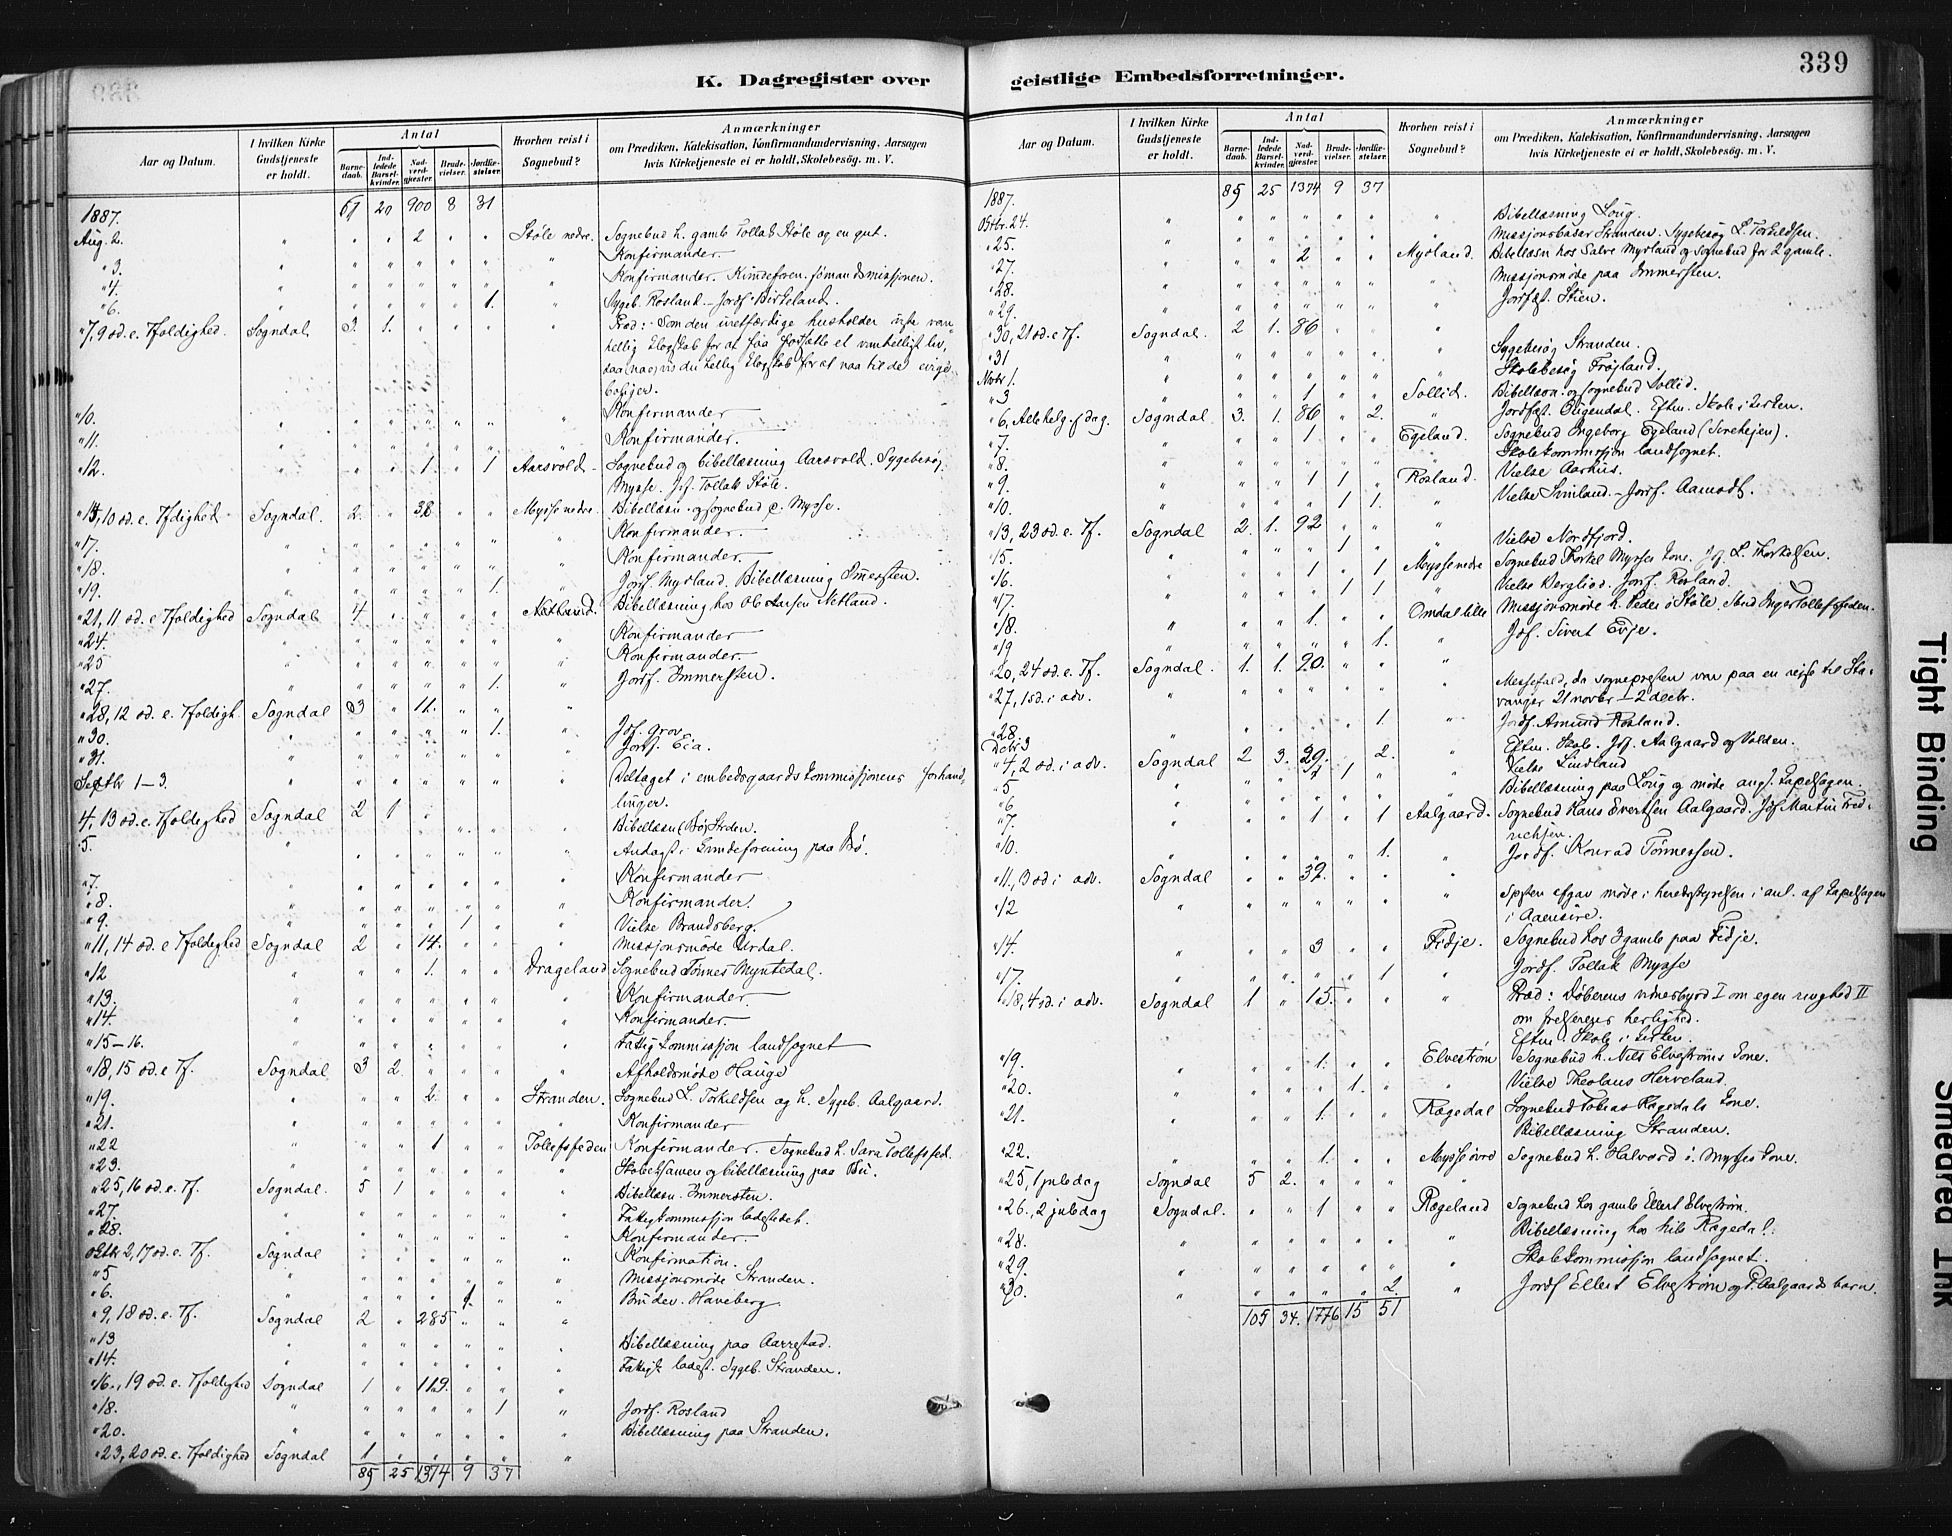 K. Dagregister over
Aar og Datum.
I hvilken Kirke Gudstjeneste er holdt.
Antal
Barnedaab.
Indledede Barselkvinder.
Nadverdgjester.
Brudevielser.
Jordfæstelser.
Hvorhen reist i Sognebud?
Anmærkninger
om Prædiken, Katekisation, Konfirmandundervisning, Aarsagen
hvis Kirketjeneste ei er holdt, Skolebesøg. m. V.
1887. 67 20 900 8 31
Aug. 2. " " " 2 " " Støle nedre. Sognebud h. gamle Tollak Støle og en gut.
" 3. " " " " " " " Konfirmander.
" 4. " " " " " " " Konfirmander. Kvindeforen. sømandsmissjonen.
" 6. " " " " " 1. " Sygeb. Rosland. – Jordf. Birkeland.
" 7, 9 sd. e. Tfoldighed. Sogndal 3. 1. " " " " Præd: Som den uretfærdige husholder viste van-
hellig klogskab for at faa fortsætte et vanhelligt lev,
boliger.
" 10. " " " " " " " Konfirmander
" 11. " " " " " " " Konfirmander.
" 12. " " " 1. " 1 Aarsvold Sognebud og bibellæsning Aarsvold. Sygebesøg
Mysse. Jf. Tollak Støle.
" 14, 10 sd. e. Tfdighed Sogndal. 2. " 38 " " Mysse nedre. Bibellæsn. og sognebud p. Mysse.
" 17. " " " " " " " Konfirmander.
" 18. " " " " " " " Konfirmander.
" 19. " " " " " 1. " Jordf. Mydland. Bibellæsning Immersten.
" 21, 11 sd. e. Tfoldighed Sogndal 4 " " " " Netland. Bibellæsning hos Ole Larsen Netland.
" 24. " " " " " " " Konfirmander
" 25 " " " " " " " Konfirmander.
" 27. " " " " " 1. " Jordf. Immersten.
" 28, 12 sd. e. Tfoldigh. Sogndal 3 " 11. " " "
" 30. " " " " " 1. " Jdf. Grov
" 31. " Jordf. Eia.
Septbr 1–3. " " " " " " " Deltaget i embedsgaardskommissjonens forhand-
linger.
4, 13 sd. e. Tfoldighed Sogndal 2 1 " " " " Bibellæsn. Bø, Strden.
5. " " " " " " " Andagt i Kvindeforening paa Bø.
" 7. " " " " " " " Konfirmander
" 8. " " " " " " " Konfirmander.
" 9. " " " " 1 " " Vielse Brandsberg.
" 11, 14 sd. e. Tfoldighed Sogndal 2 " 14. " " " Missjonsmøde Urdal.
" 12 " " " 1. " " Drageland Sognebud Tønnes Myntedal.
" 13. " " " " " " " Konfirmander
" 14. " " " " " " " Konfirmander.
" 15–16. " " " " " " " Fattigkommissjon landsognet
" 18, 15 sd. e Tf. Sogndal 3 2. " " " " Afholdsmøde Hauge
" 19. " " " 2. " " Stranden. Sognebud L. Torkildsen og h. Sygeb. Aalgaard.
" 21. " " " " " " " Konfirmander
" 22 " " " 1 " " Tollefsfeden Konfirmander. Sognebud h. Sara Tollefsfed.
" 23. " " " " " " " Skoleksamen og bibellæsning paa Bø.
" 25, 16 sd. e. Tf. Sogndal. 5 1 " " " " Bibellæsn. Immersten.
" 27. " " " " " " " Fattigkommissjon ladestedet.
" 28. " " " " " " " Konfirmander.
Oktbr 2, 17 sd. e. Tf. Sogndal " " " " " " Konfirmation.
" 5 " " " " " " " Missjonsmøde Stranden.
" 6. " " " " 1. " " Bruden. Haneberg
" 9, 18 sd. e. Tf. Sogndal 2 " 285 " " "
" 13 " Bibellæsning paa Aarrestad.
" 14. " Fattigk ladest. Sygeb. Stranden.
" 16., 19 sd. e. Tfoldighed Sogndal 1 " 119. " " "
" 18. " " " " " 1 " Jordf. Rosland
" 20. " " " " " " " Bibellæsning paa Stranden.
" 23, 20 sd. e. Tfoldighed Sogndal 1 " " " " "
85 25 1374 9 37
geistlige Embedsforretninger.
339
Aar og Datum.
I hvilken Kirke Gudstjeneste er holdt.
Antal
Barnedaab.
Indledede Barselkvinder.
Nadverdgjester.
Brudevielser.
Jordfæstelser.
Hvorhen reist i Sognebud?
Anmærkninger
om Prædiken, Katekisation, Konfirmandundervisning, Aarsagen
hvis Kirketjeneste ei er holdt, Skolebesög. m. V.
1887. 85 25 1374 9 37
Oktbr. 24. " " " " " " " Bibellæsning Loug.
" 25. " " " " " " " Missjonsbasar Stranden. Sygebesøg L. Torkildsen.
" 27. " " " 2 " " Mydland. Bibellæsn hos Salve Mydland og Sognebud for 2 gamle.
" 28. " " " " " " " Missjonsmøde paa Immersten.
" 29. " " " " " " " Jordfæst. Stien.
" 30, 21 sd. e Tf. Sogndal. 2 1. 86 " " "
" 31 " " " " " " " Sygebesøg Stranden.
Novbr 1. " " " " " " " Skolebesøg Frøyland.
" 3 " " " 1 " " Sollid. Bibellæsn. og sognebud Sollid.
" 6, Allehelg. dag. Sogndal 3. 1. 86 " 2. " Jordfæst. Ougendal. Eftm. Skole i kirken.
" 7. " " " 1 " " Egeland. Sognebud Ingeborg Egeland
" 8. " " " " " " " Skolekommissjon landsognet.
" 9. " " " 1 1 " Rosland. Vielse Aarhus.
" 10. " " " " 1 1. " Vielse Svinland. – Jordf. Aamodt.
" 13, 23 sd. e. Tf. Sogndal 2. 1. 92 " " "
" 15. " " " " 1 " " Vielse Nordfjord.
" 16. " " " 1 " 1 Mysse nedre Sognebud Torkel Mysses kone. Jf. L. Thorkelsen.
" 17. " " " " 1 1 " Vielse Bergliod. Jordf. Rosland
" 18. " " " 1. " " Omdal lille Missjonsmøde h. Peder ø Støle. Sbud Inger Tollefsfeden.
" 19 " " " " " 1. " Jdf. Sivert Evje.
" 20, 24 sd. e. Tf. Sogndal. 1. 1. 90. " " "
" 27, 1 sd. i adv. " " " " " " " Messefald, da sognepresten var paa en rejse til Sta-
vanger 21 novbr – 2 decbr.
" 28. " " " " " 1. " Jordf. Asmund Rosland.
Decbr 3
" 4, 2 sd. i adv. Sogndal 2 3. 29. " 2. " Eftm. Skole. Jdf. Aalgaard og Valden.
" 5 " " " " 1 " " Vielse Lindland
" 6 " " " " " " " Bibellæsning paa Loug og møde ang. kapelsagen.
" 7. " " " 1 " 1 Aalgaard. Sognebud Hans Evertsen Aalgaard. Jdf Martin Fred-
richsen.
" 10. " " " " " 1. " Jordf. Konrad Tønnessen.
" 11., 3 sd i adv. Sogndal " " 32. " " "
" 12 " " " " " " " møde i heredsstyrelsen i anl. af kapelsagen
i Aaensire.
" 14. " " " 3 " " Fidje. Sognebud hos 3 gamle paa Fidje.
" 17. " " " " " 1 " Jordf. Tollak Mysse
" 18, 4 sd. i adv. Sogndal 1 " 15. " " " Præd: Døberens vidnesbyrd I om egen ringhed II
om frelserens herlighed.
Eftm. Skole i kirken.
" 19. " " " 1. " " Elvestrøm Sognebud h. Nils Elvestrøms kone.
" 20. " " " " 1. " " Vielse Theolaus Herveland.
" 21. " " " 1. " " Rægedal Sognebud Tobias Rægedals kone.
Bibellæsning Stranden.
" 22. " " " 1. " " Mysse øvre Sognebud h. Halvard ø. Mysses kone.
" 25, 1 juledag Sogndal 5 2. " " " "
" 26., 2 juledag Sogndal. " " 1 " " Rægeland Sognebud hos gamle Ellert Elvestrøm.
" 28. " " " " " " " Bibellæsning hos Nils Rægedal.
" 29. " " " " " " " Skolekommissjon landsognet.
" 30. " " " " " 2. " Jordf Ellert Elvestrøm og P. Aalgaards barn.
105 34. 1776 15 51
Tight Binding
Smeared Ink